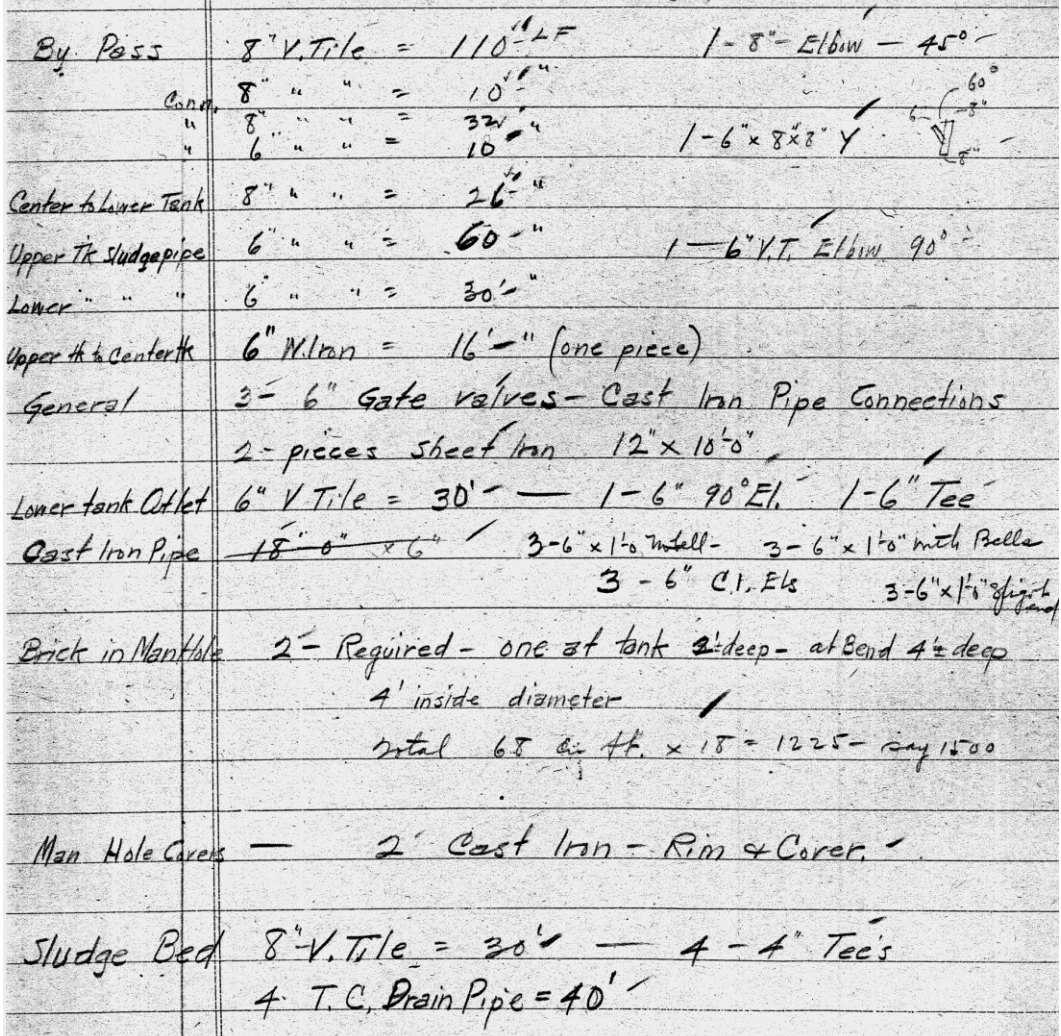 By Pass 8" V.Tile = 110' LF 1-8"- Elbow - 45°
Conn. 8" " " = 10' "
" 8" " " = 32 "
" 6" " " = 10 "
1-6"x8"x8" Y 6" 60° 8" 8"
Center to Lower Tank 8" " " = 26' "
Upper Tk Sludgepipe 6" " " = 60 - " 1-6" V.T. Elbow 90°
Lower " " " 6" " " = 30'- "
Upper tk to Center tk 6" W.Iron = 16'- " (one piece)
General 3- 6" Gate valves - Cast Iron Pipe Connections
2- pieces Sheet Iron 12" x 10'-0"
Lower tank Outlet 6" V Tile = 30' — 1-6" 90° El. 1-6" Tee
Cast Iron Pipe 18" 0" x 6" 3-6" x 1'-0 3-6" x 1'-0" with Bells
3 - 6" C.I. Els 3-6" x 1'-0" end
Brick in ManHole 2- Required - one at tank deep - at Bend 4'± deep
4' inside diameter
Total 68 cu ft. x 18 = 1225 - say 1500
Man Hole Covers — 2 Cast Iron - Rim & Cover.
Sludge Bed 8"-V.Tile = 30' — 4-4" Tee's
4" T.C. Drain Pipe = 40'